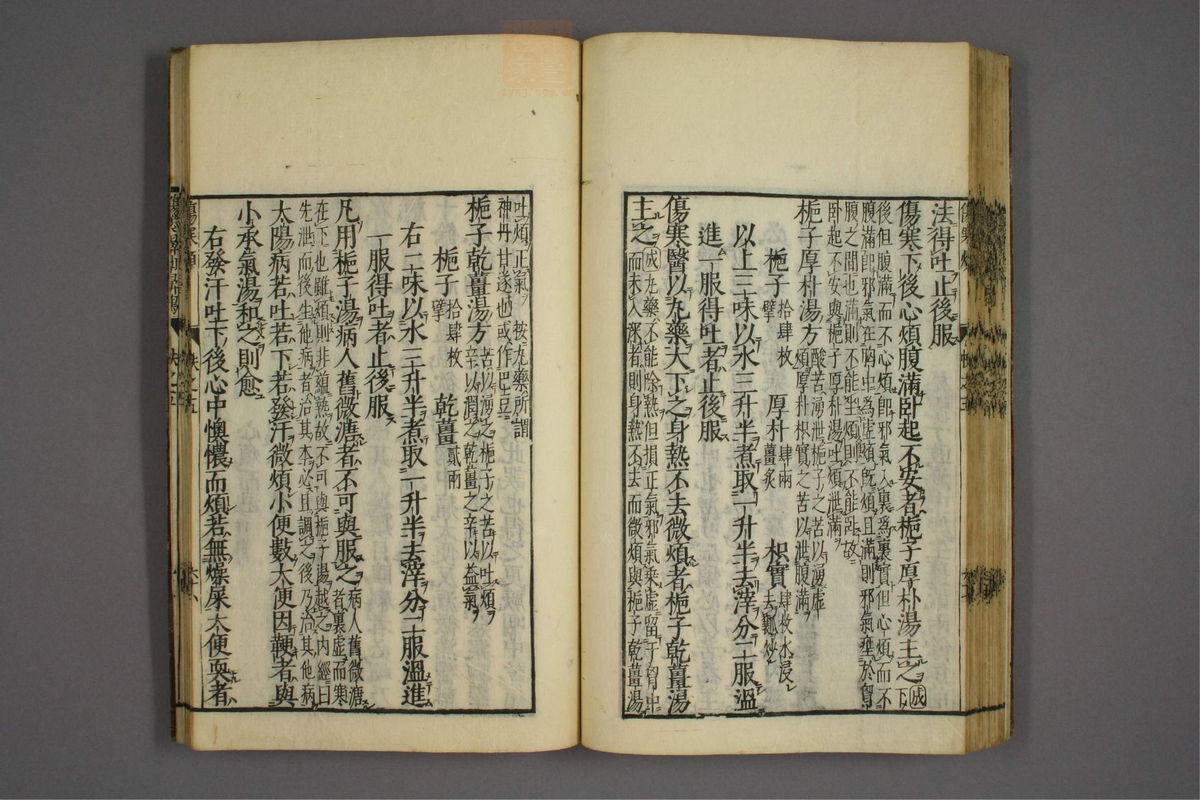 法得吐止後服
傷寒下後心煩腹滿臥起不安者梔子厚朴湯主之成下
後但腹滿而不心煩即邪氣入裏為裏實但心煩而不
腹滿即邪氣在胸中為虛煩既煩且滿則邪氣壅於胷
腹之間也滿則不能坐煩則不能臥故
臥起不安與梔子厚朴湯吐煩泄滿
梔子厚朴湯方酸苦湧泄梔子之苦以湧虛
煩厚朴枳實之苦以泄腹滿
梔子拾肆枚擘 厚朴肆兩薑炙 枳實肆枚水浸去瓤炒
以上三味以水三升半煮取一升半去滓分二服溫
進一服得吐者止後服
傷寒醫以丸藥大下之身熱不去微煩者梔子乾薑湯
主之成丸藥不能除熱但損正氣邪氣乘虛留于胷中
而未入深者則身熱不去而微煩與梔子乾薑湯
吐煩正氣 按丸藥所謂
神丹甘遂也或作巴豆
梔子乾薑湯方苦以湧之梔子之苦以吐煩
辛以潤之乾薑之辛以益氣
梔子拾肆枚擘 乾薑貳兩
右二味以水三升半煮取一升半去滓分二服溫進
一服得吐者止後服
凡用梔子湯病人舊微溏者不可與服之病人舊微溏
者裏虛而寒
在下也雖煩則非蘊熱故不可與梔子湯越之內經曰
先泄而後生他病者治其本必且調之後乃治其他病
太陽病若吐若下若發汗微煩小便數大便因鞕者與
小承氣湯和之則愈
右發汗吐下後心中懊憹而煩若無燥屎大便耎者